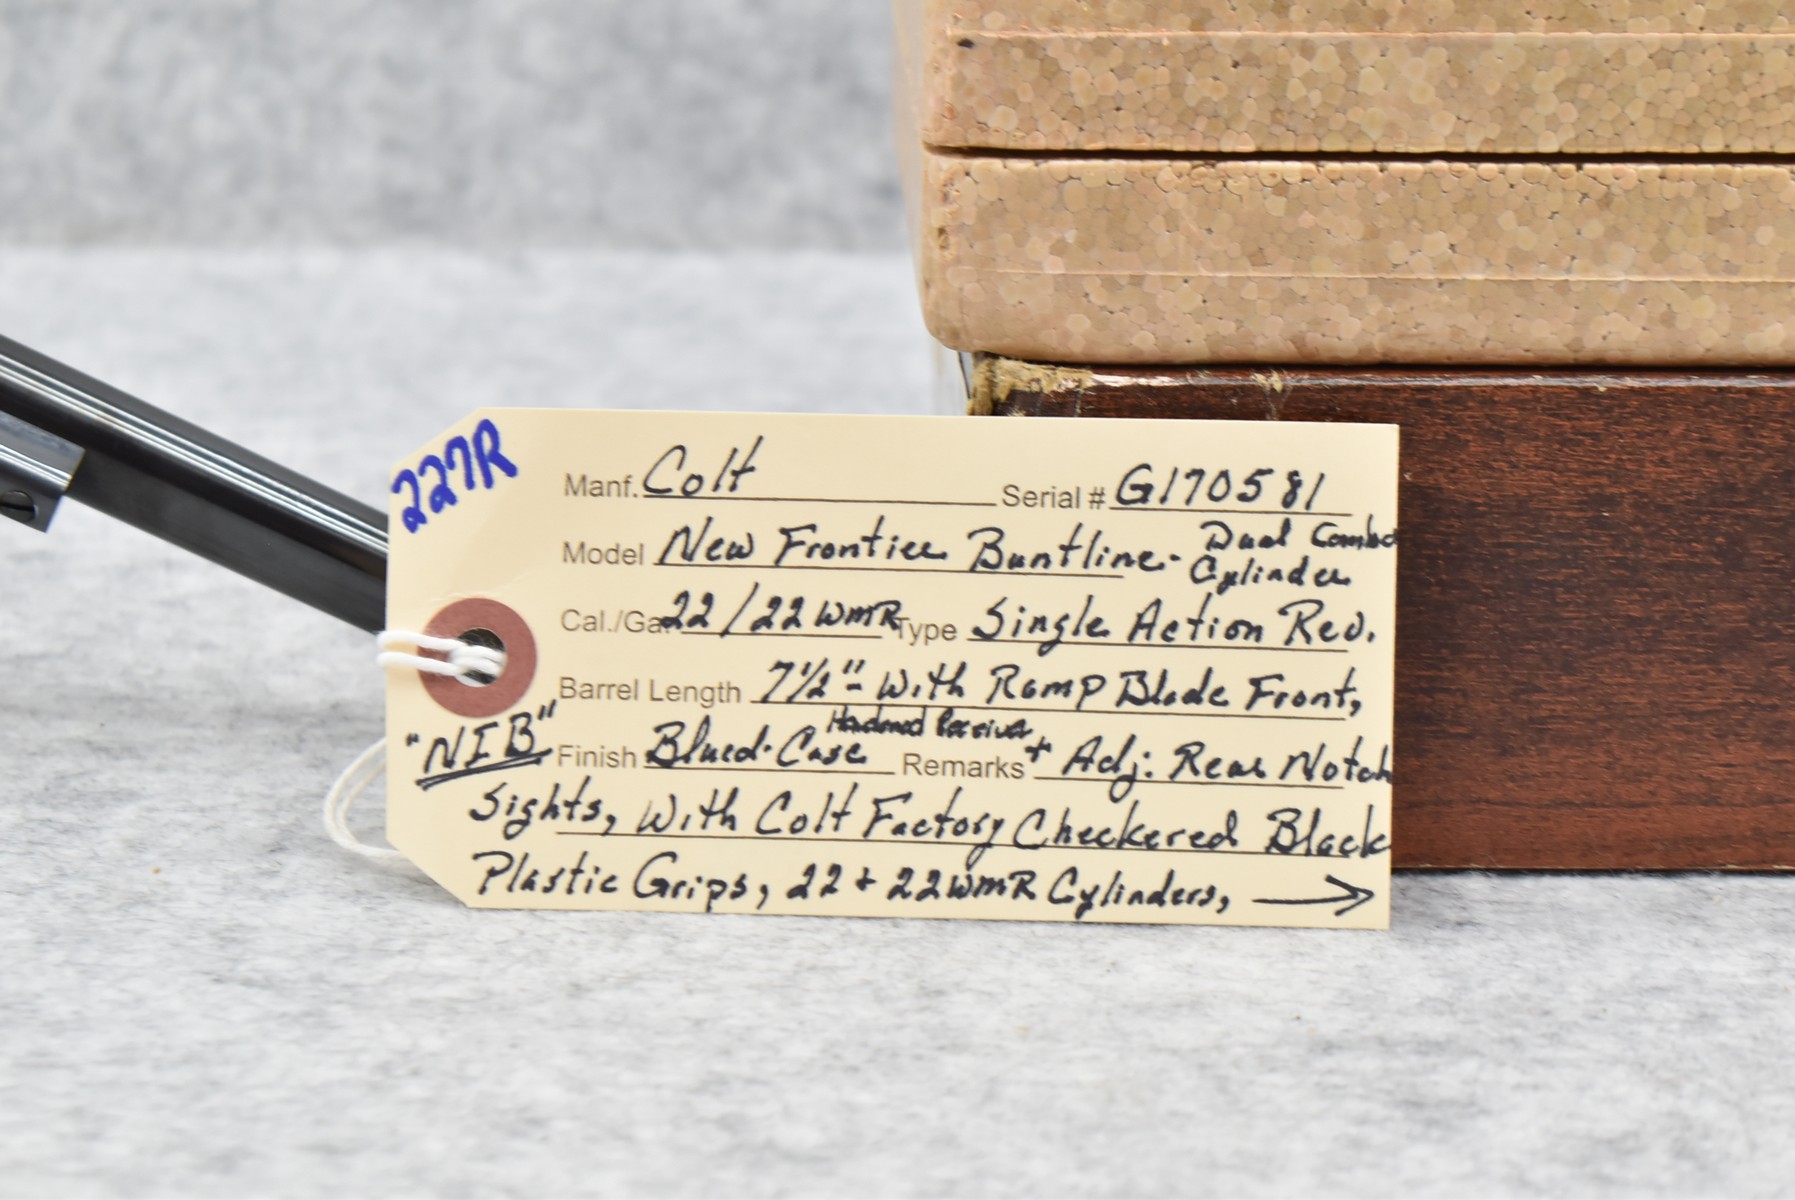 227R
Manf. Colt Serial # G170581
Model New Frontier Buntline - Dual Combo Cylinder
Cal./Ga. 22/22 WMR Type Single Action Rev.
Barrel Length 7½" - With Ramp Blade Front,
"NIB" Finish Blued - Case Hardened Receiver Remarks + Adj: Rear Notch
Sights, With Colt Factory Checkered Black
Plastic Grips, 22 + 22WMR Cylinders, →